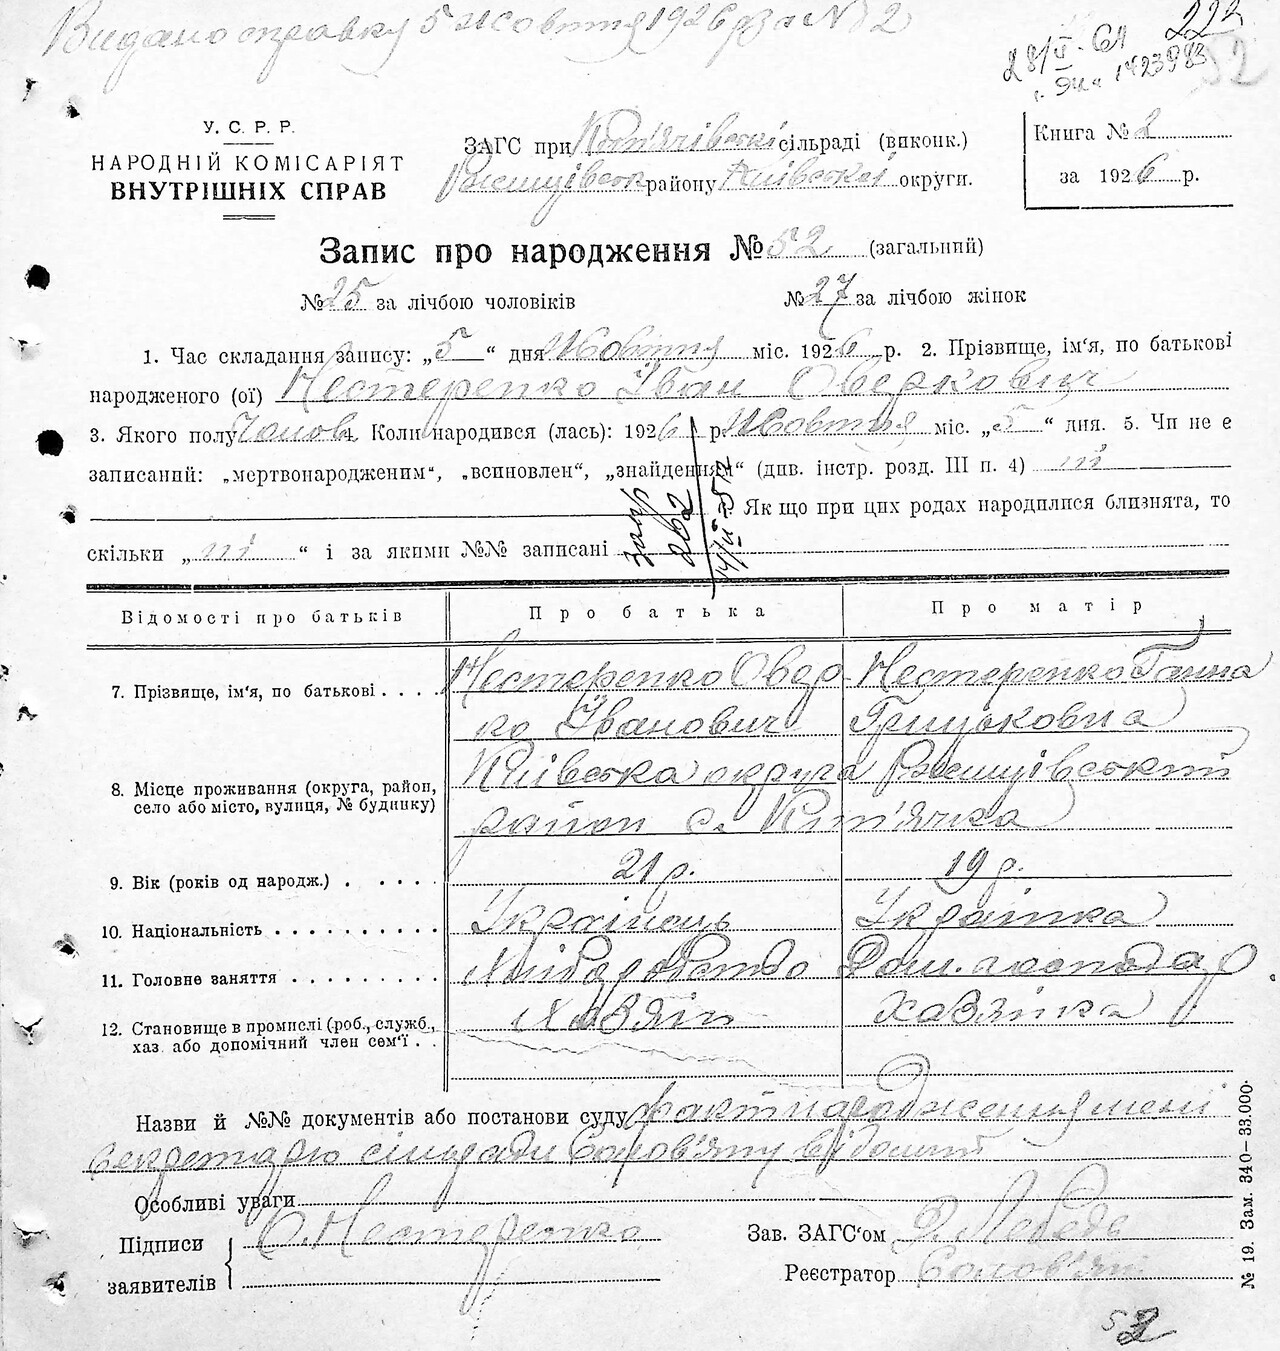 Видано справку 5 жовтня 1926 р за № 2
222
28/IV-61
52
У. С. Р. Р.
НАРОДНІЙ КОМІСАРІЯТ
ВНУТРІШНІХ СПРАВ
ЗАГС при сільраді (виконк.)
району Київської округи.
Книга № 2
за 1926 р.
Запис про народження № 52 (загальний)
№ 25 за лічбою чоловіків № 27 за лічбою жінок
1. Час складання запису: „5“ дня Жовтня міс. 1926 р. 2. Прізвище, ім'я, по батькові
народженого (ої) Нестеренко Іван Оверкович
3. Якого полу Чолов. 4. Коли народився (лась): 1926 р. Жовтня міс. „5“ дня. 5. Чи не є
записаний: „мертвонародженим“, „всиновлен“, „знайденням“ (див. інстр. розд. III п. 4) ні
Як що при цих родах народилися близнята, то
скільки „ні“ і за якими №№ записані
Відомості про батьків Про батька Про матір
7. Прізвище, ім'я, по батькові . . . . Нестеренко Овер- Нестеренко Ганна
ко Іванович Грицьковна
8. Місце проживання (округа, район, Київська округа Ржищівський
село або місто, вулиця, № будинку) район с.
9. Вік (років од народж.) . . . . . 21 р. 19 р.
10. Національність . . . . . . . . . . Українець Українка
11. Головне заняття . . . . . . . . . Хліборобство Дом. господар.
12. Становище в промислі (роб., служб., Хазяїн Хазяйка
хаз. або допомічний член сем'ї . .
Назви й №№ документів або постанови суду факт народження мені
секретарю сільради Солов'яну відомий
Особливі уваги
Підписи О. Нестеренко Зав. ЗАГС'ом
заявителів Реєстратор
№ 19. Зам. 340—33.000.
52